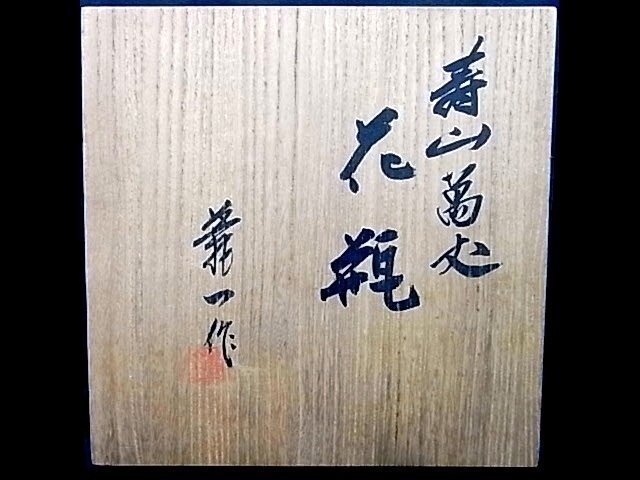 寿山萬丈
花瓶
華一作